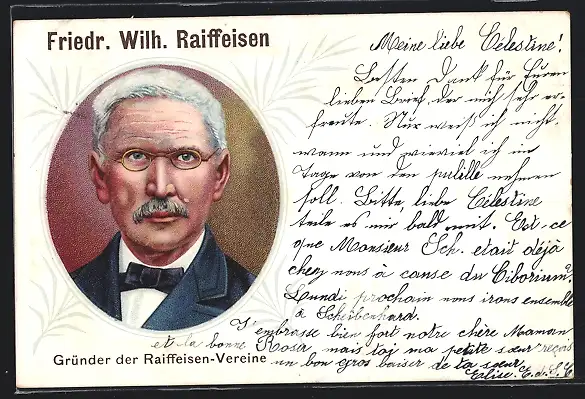 Friedr. Wilh. Raiffeisen
Meine liebe Célestine!
Besten Dank für Euren
lieben Brief, der mich sehr er-
freute. Nur weiß ich nicht,
wann und wieviel ich im
Tage von den pulille nehmen
soll. Bitte, liebe Célestine
teile es mir bald mit. Est-ce
que Monsieur Sch. était déjà
chez nous à cause du Ciborium?
Lundi prochain nous irons ensemble
à Scheibenhard.
J'embrasse bien fort notre chère Maman
et la bonne Rosa, mais toi ma petite sœur reçois
un bon gros baiser de ta sœur
Gründer der Raiffeisen-Vereine
Elise.